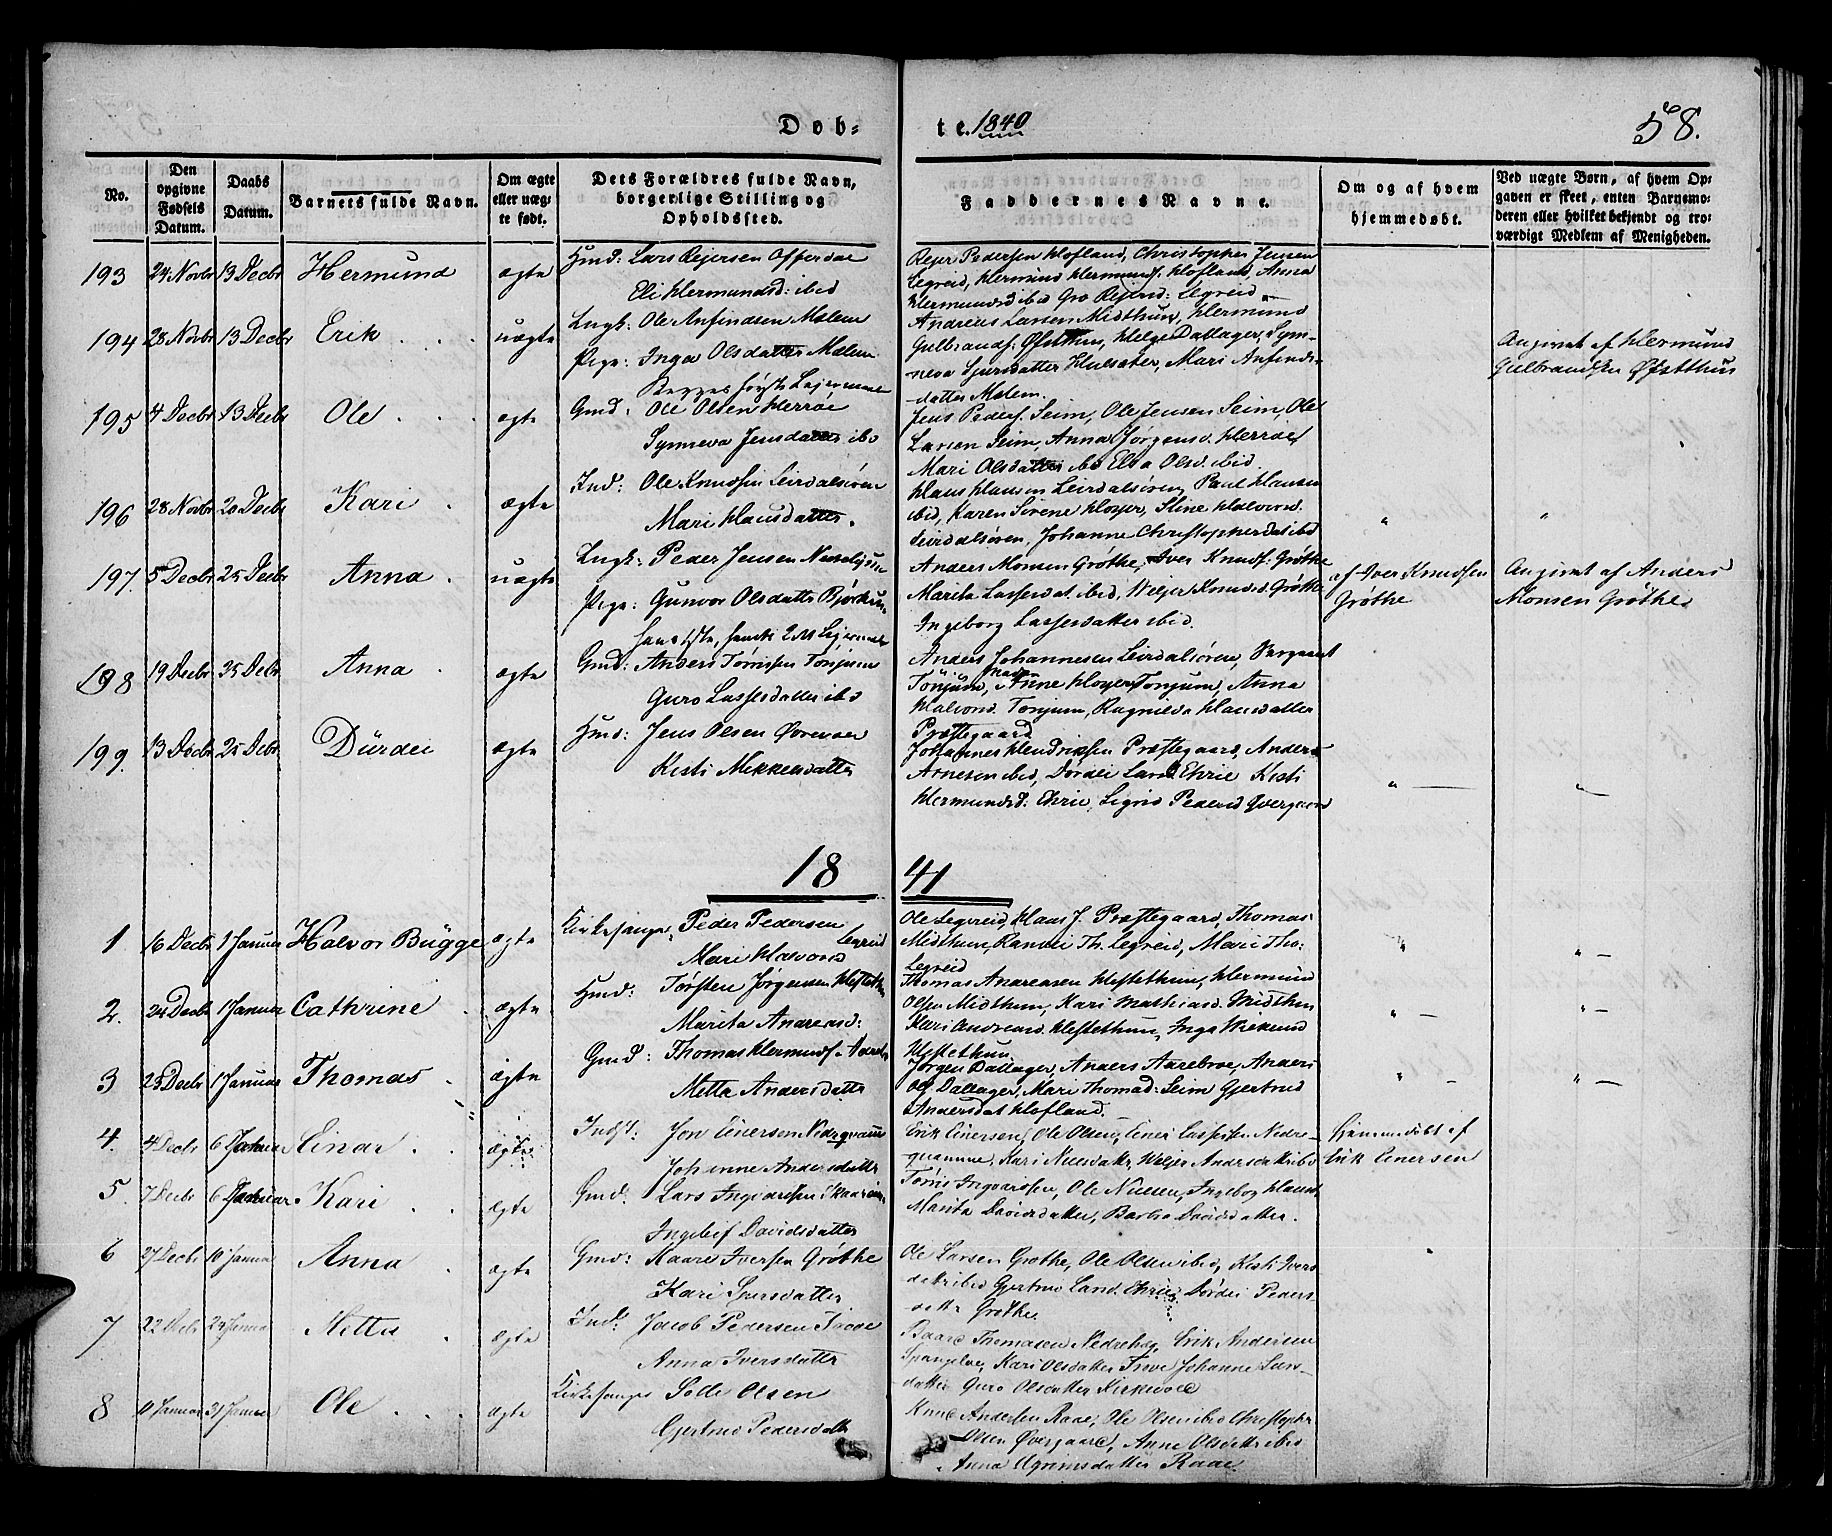 Døb-
te. 1840
58.
No.
Den opgivne Fødsels Datum.
Daabs Datum.
Barnets fulde Navn.
Om ægte eller uægte født.
Dets Forældres fulde Navn, borgerlige Stilling og Opholdssted.
Faddernes Navne.
Om og af hvem hjemmedøbt.
Ved uægte Børn, af hvem Opgaven er skeet, enten Barnemoderen eller hvilket bekjendt og troværdigt Medlem af Menigheden.
193 24 Novbr 13 Decbr Hermund ægte Gmd: Lars Rejersen Offerdal
Eli Hermundsd: ibid
Rejer Pedersen Hofland, Christopher Jensen
Legreid, Hermund Hermunds. Hofland, Anna
Hermundsd ibid Gro Rejersd: Legreid
194 28 Novbr 13 Decbr Erik uægte Ungk: Ole Anfindsen Molem
Pige: Inga Olsdatter Molem
Begges første Lejermaal
Andreas Larsen Midthun, Hermund
Gulbrands. Øfstthun, Helge Dallager, Syn-
neva Sjursdatter Huesæter, Mari Anfinds-
datter Molem.
Angivet af Hermund
Gulbrandsen Øfstthus
195 4 Decbr 13 Decbr Ole ægte Gmd: Ole Olsen Herrøe
Synneva Jensdatter ibd
Jens Peders. Seim, Ole Jensen Seim, Ole
Larsen Seim, Anna Jørgensd. Herrøe
Mari Olsdatter ibd Elsa Olsd. ibid.
196 28 Novbr 20 Decbr Kari ægte Ind: Ole Knudsen Leirdalsøren
Mari Hansdatter.
Hans Hansen Leirdalsøren, Paul Hansen
ibid, Karen Sirene Høyer, Stine Halvorsd.
Leirdalsøren, Johanne Christophersdat ibd
197. 5 Decbr 25 Decbr Anna uægte Ungk: Peder Jensen
Pige: Gunvor Olsdatter Bjørkum
Anders Monsen Grøthe, Iver Knuds. Grøthe
Marita Lassesdat ibid, Weljer Knudsd. Grøthe
Ingeborg Lassesdatter ibid.
af Iver Knudsen
Grøthe
Angivet af Anders
Monsen Grøthe
198 19 Decbr 25 Decbr Anna ægte Gmd: Anders Tørrissen Tønjum
Guro Lassesdatter ibd
Anders Johannesen Leirdalsøren,
Tønjum, Anne Høyer Tonjum, Anna
Halvorsd. Tonjum, Ragnilda Hansdatter
Præstegaard
199. 13 Decbr 25 Decbr Dürdei ægte Hmd: Jens Olsen
Kisti Mikkelsdatter
Johannes Hendriksen Præstegaard, Anders
Arnesen ibid, Dordei Larsd Ehrie Kisti
Hermundsd: Ehrie, Sigrid Pedersd
1841
1 16 Decbr 1 Januar Halvor Bügge ægte Kirkesanger Peder Pedersen
Legreid
Mari Halvorsd
Ole Legreid, Hans J. Præstegaard, Thomas
Midthun, Randei Th. Legreid, Mari Tho-
Legreid
2. 24 Decbr 1 Januar Cathrine ægte Hmd: Torsten Jørgensen Hestethun
Marita Andreasd:
Thomas Andreasen Hestethun, Hermund
Olsen Midthun, Kari Mathiasd. Midthun
Kari Andreasd. Hestethun, Inga
Hestethun
3 23 Decbr 1 Januar Thomas ægte Gmd: Thomas Hermunds.
Metta Andersdatter
Jørgen Dallager, Anders Aarebroe, Anders
Ols Dallager, Mari Thomasd: Seim Gjertrud
Andersdat Hofland.
4. 4 Decbr 6 Januar Einar ægte Indst: Jon Einersen Nedrequamme
Johanne Andersdatter
Erik Einersen, Ole Olsen, Einer Nedre-
quamme, Kari Nielsdattr, Weljer Andersdattribd
hjemmedøbt af
Erik Einersen
5. 7 Decbr 6 Januar Kari ægte Gmd. Lars Ingvardsen Skaarheim
Ingelef Davidsdatter
Tørris Ingvardsen, Ole Nielsen, Ingebog
Marita Davidsdatter, Barbro Davidsdatter.
6 27 Decbr 10 Januar Anna ægte Gmd: Kaare Iversen Grøthe
Kari Sjursdatter
Ole Larsen Grøthe, Ole Olsen ibid, Kisti Ivers
dattribid Gjertrud Larsd. Ehrie, Dordei Peders-
dattr Grøthe
7 22 Decbr 24 Januar Metta ægte Ind: Jacob Pedersen
Anna Iversdatter
Baard Thomasen Nedrehag, Erik Andersen
Spangelve, Kari Olsdatter Johanne Lars-
datter Guro Olsdatter Kirkevold
8 9 Januar 31 Januar Ole ægte Kirkesanger Salle Olsen
Gjertrud Pedersdattr
Knud Andersen Raae, Ole Olsen ibd Christopher
Olsen Øvregaard, Anne Olsdattribid
Anna Ogrimsdatter Raae.